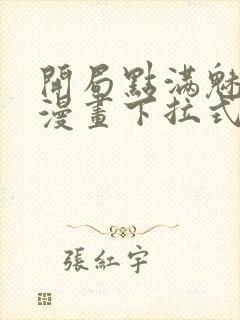 開局點滿魅
漫畫下拉式
張紅宇